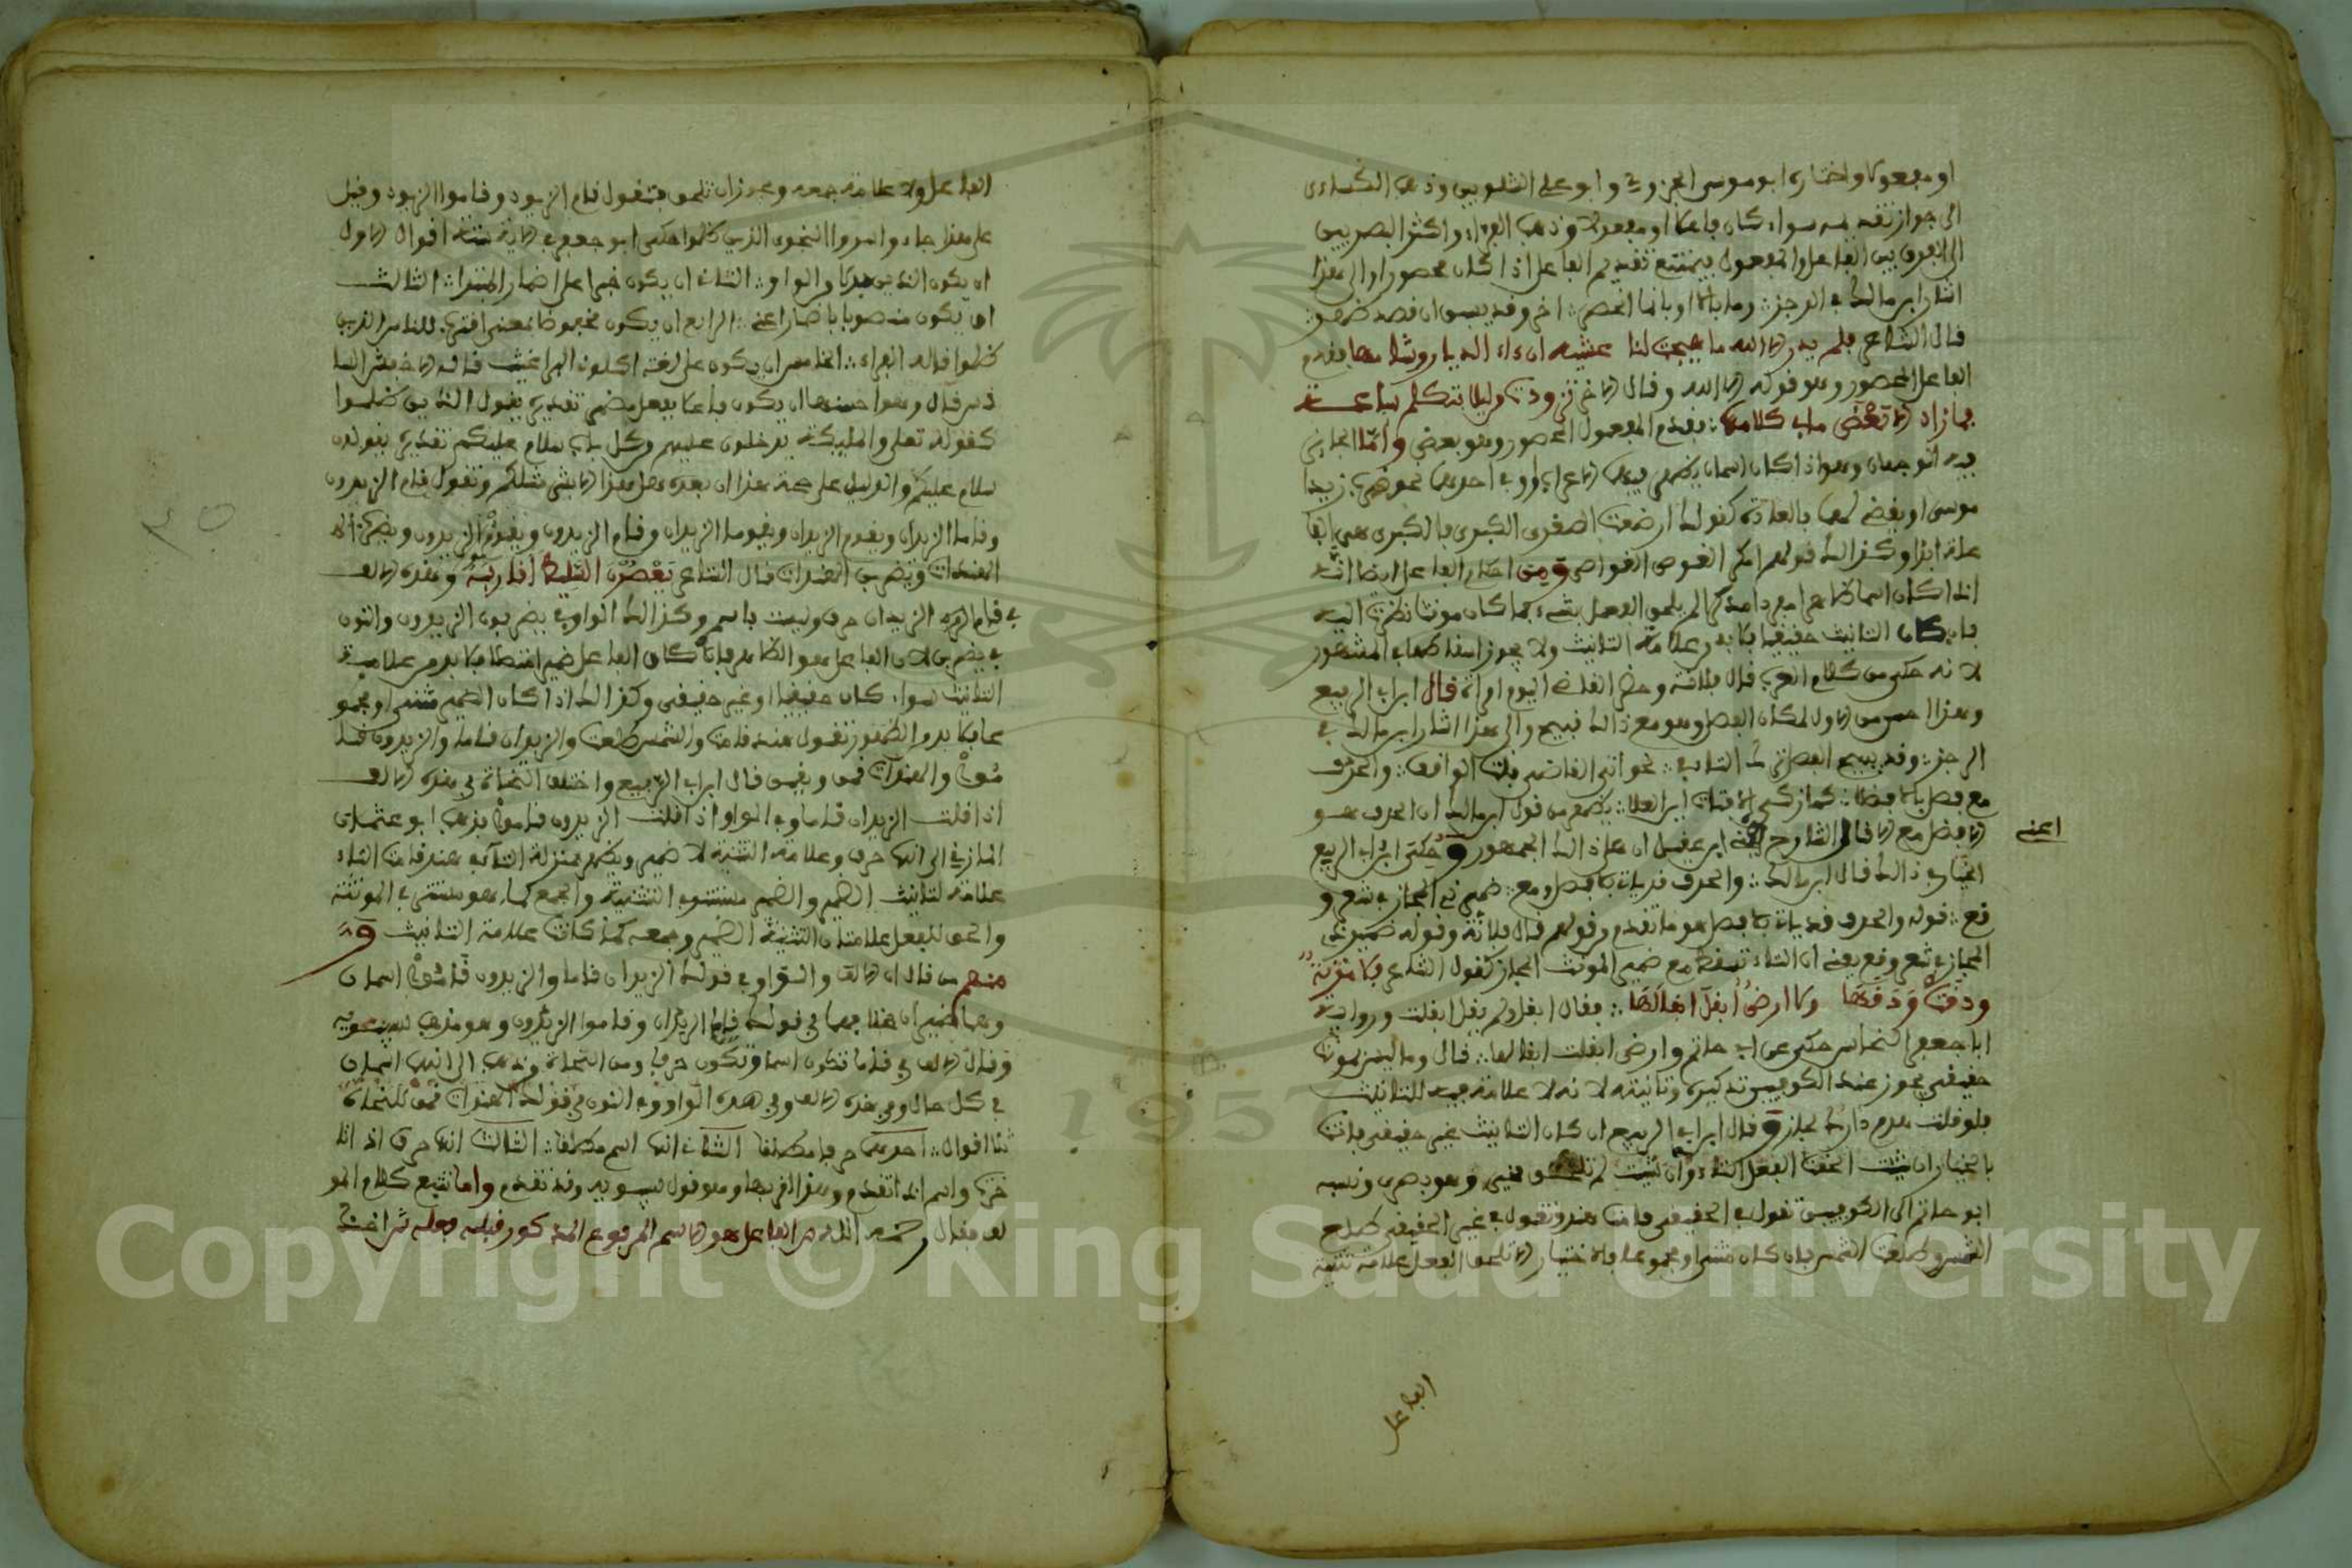 او مفعولا واختاره ابو موسى الجزولي وابو علي الشلوبين وذهب الكسائي
الى جواز تقديمه سواء كان فاعلا او مفعولا وذهب الفراء واكثر البصريين
الى الفرق بين الفاعل والمفعول فيمتنع تقديم الفاعل اذا كان محصورا والى هذا
اشار ابن مالك في الرجز وما بالا او بانما انحصر اخر وقد يسبق ان قصد ظهر
قال الشاعر فلم يدر الا الله ما هيجت لنا عشية اناء الديار وشامها فقدم
الفاعل المحصور وهو قوله الا الله وقال الاخر تزودت من ليلى بتكليم ساعة
فما زاد الا ضعف ما بي كلامها فقدم المفعول المحصور وهو ضعف واما الجائز
فيه الوجهان وهو اذا كان اسمان يظهر فيهما الاعراب او في احدهما نحو ضرب زيدا
موسى او يفهم لهما بالعادة كقولك ارضعت الصغرى الكبرى فالكبرى هي الفا
علة ابدا وكذلك قولهم ومن احكام الفاعل ايضا انه
اذا كان اسما ظاهرا مفردا مذكرا لم يلحق الفعل بشيء كما كان مونثا نظرت اليه
فان كان التانيث حقيقيا فلا بد من علامة التانيث ولا يجوز اسقاطها في المشهور
لانه حكي من كلام العرب قال فلانة وحضر القاضي اليوم امراة قال ابن ابي الربيع
وهذا احسن من الاول لمكان الفصل وهو مع ذلك قبيح والى هذا اشار ابن مالك في
الرجز وقد يبيح الفصل ترك التاء في نحو اتى القاضي بنت الواقف والحذف
مع فصل بالا فضلا كما زكى الا فتاة ابن العلا يظهر من قول ابن مالك ان الحذف هو
الافضل مع الا قال الشارح ابن عقيل ان على ذلك الجمهور وحكى ابن ابي الربيع
اعني
الخيار في ذلك قال ابن مالك والحذف قد ياتي بلا فصل ومع ضمير ذي المجاز في شعر و
قع قوله والحذف قد ياتي بلا فصل هو ما تقدم من قولهم قال فلانة وقوله ضمير ذي
المجاز في شعر وقع يعني ان التاء تسقط مع ضمير المونث المجاز كقول الشاعر فلا مزنة
ودقت ودقها ولا ارض ابقل ابقالها فقال ابقل ولم يقل ابقلت ورواية
ابا جعفر النحاس حكى عن ابي حاتم وارض ابقلت ابقالها قال وما ليس بمونث
حقيقي يجوز عند الكوفيين تذكيره وتانيثه لانه لا علامة فيه للتانيث
فلو قلت هدم دارك لجاز وقال ابن ابي الربيع ان كان التانيث غير حقيقي فانت
بالخيار ان شئت الحقت الفعل التاء وان شئت لم تلحق
ابو حاتم الى الكوفيين تقول في الحقيقي قامت هند وتقول في غير الحقيقي طلع
الشمس وطلعت الشمس فان كان مثنى او مجموعا فالاختيار الا تلحق الفعل علامة تثنية
الفاعل
الفاعل ولا علامة جمعه ويجوز ان تلحق فتقول قام الزيود وقاموا الزيود وقيل
على هذا جاء واسروا النجوى الذين ظلموا حكى ابو جعفر في الاية ستة اقوال الاول
ان يكون الذين بدلا من الواو الثاني ان يكون خبرا على اضمار المبتدا الثالث
ان يكون منصوبا باضمار اعني الرابع ان يكون مخفوضا بمعنى اقترب للناس الذين
ظلموا قاله الفراء الخامس ان يكون على لغة اكلوني البراغيث قاله الاخفش السا
دس قال وهو احسنها ان يكون فاعلا بفعل مضمر تقديره يقول الذين ظلموا
كقوله تعلى والمليكة يدخلون عليهم من كل باب سلام عليكم تقديره يقولون
سلام عليكم والدليل على صحة هذا ان بعده هل هذا الا بشر مثلكم وتقول قام الزيدون
وقاما الزيدان ويقوم الزيدان ويقوما الزيدان وقام الزيدون ويقوم الزيدون وتضرب
الهندات وتضربن الهندات قال الشاعر يعصرن السليط اقاربه وهذه الالف
في قاما الزيدان حرف وليست باسم وكذلك الواو في يضربون الزيدون والنون
في يضربن لان الفاعل هو الظاهر فاذا كان الفاعل ضميرا متصلا فلا بد من علامة
التانيث سواء كان حقيقيا او غير حقيقي وكذلك اذا كان الضمير مثنى او مجمو
عا فلا بد من الظهور تقول هند قامت والشمس طلعت والزيدان قاما والزيدون قا
موا والهندات قمن ويقمن قال ابن ابي الربيع واختلف النحاة في هذه الالف
اذا قلت الزيدان قاما وفي الواو اذا قلت الزيدون قاموا فذهب ابو عثمان
المازني الى انها حرف وعلامة التثنية لا ضمير ويظهر بمنزلة التاء في هند قامت التاء
علامة لتانيث الضمير والضمير مستتر في التثنية والجمع كما هو مستتر في المونثة
والحق للفعل علامتان التثنية الضمير وجمعه كما كانت علامة التانيث و
منهم من قال ان الالف والواو في قولك الزيدان قاما والزيدون قاموا اسمان
وهما ضميران هنا في قولك قاما الزيدان وقاموا الزيدون وهو مذهب سيبويه
وقال الالف في قاما تكون اسما وتكون حرفا ومن النحاة من ذهب الى انهما اسمان
في كل حال وفي هذه الالف وفي هذه الواو وفي النون في قولك الهندات قمن للنحاة
ثلاثة اقوال احدها حرفا مطلقا الثاني انها اسم مطلقا الثالث انها حرف اذا
تاخرت واسم اذا تقدم وهو قول سيبويه وقد تقدم واما تتبع كلام المو
لف فقال رحمه الله الفاعل هو الاسم المرفوع المذكور قبله فعله